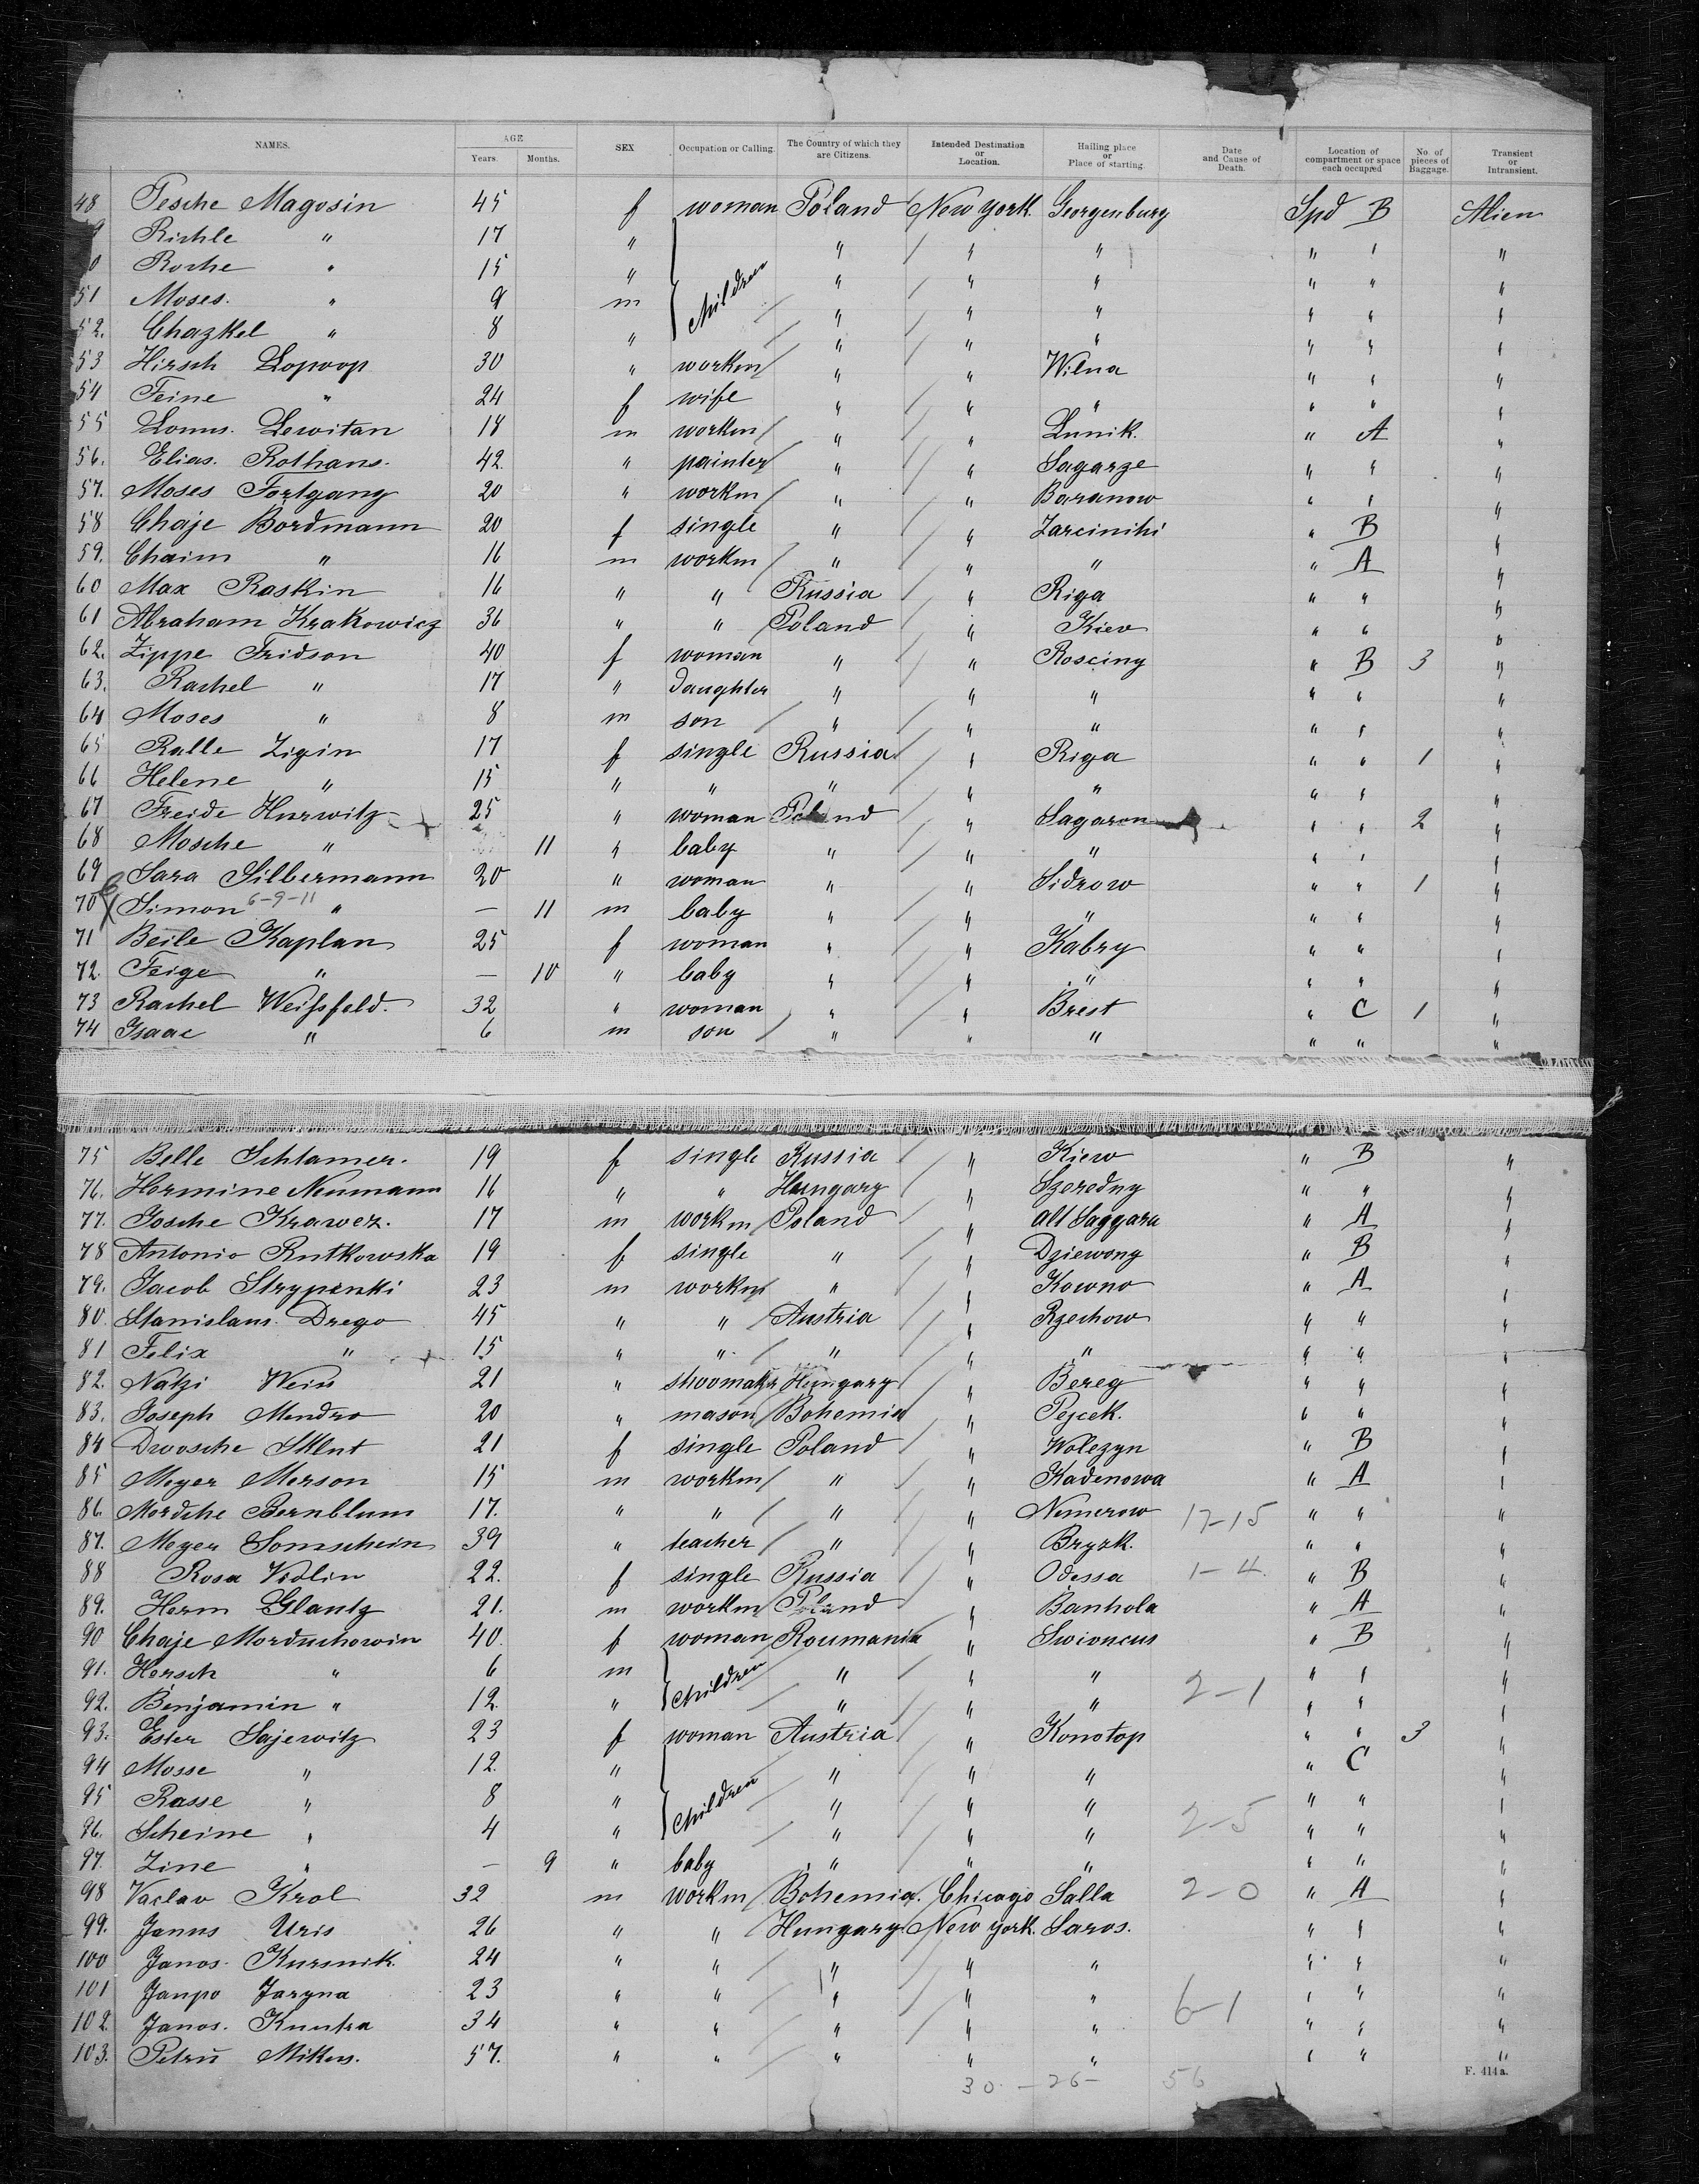 NAMES. AGE Years. Months. SEX Occupation or Calling. The Country of which they are Citizens. Intended Destination or Location. Hailing place or Place of starting. Date and Cause of Death. Location of compartment or space each occupied No. of pieces of Baggage. Transient or Intransient.
48 Pesche Magosin 45 f woman Poland New York. Georgenburg Spd B Alien
Richle " 17 " " " " " " "
0 Roche " 15 " children " " " " " "
51 Moses. " 9 m " " " " " "
52. Chazkel " 8 " " " " " " "
53 Hirsch Lopoop 30 " workm " " Wilna " " "
54 Feine " 24 f wife " " " " " "
55 Lewitan 18 m workm " " Lunik. " A "
56. Elias. Rothans. 42. " painter " " Sagarze " " "
57. Moses Fortgang 20 " workm " " Baranow " " "
58 Chaje Bordmann 20 f single " " Zarcinihi " B "
59. Chaim " 16 m workm " " " " A "
60 Max Raskin 16 " " Russia " Riga " " "
61 Abraham Krakowicz 36 " " Poland " Kiev " " "
62. Zippe Fridson 40 f woman " " Rosciny " B 3 "
63. Rachel " 17 " daughter " " " " " "
64 Moses " 8 m son " " " " " "
65 Ralle Zigin 17 f single Russia " Riga " " 1 "
66 Helene " 15 " " " " " " " "
67 Freide Hurwitz 25 " woman Poland " Sagaron " " 2 "
68 Mosche " 11 " baby " " " " " "
69 Sara Silbermann 20 " woman " " Sidrow " " 1 "
70 Simon 6-9-11 " — 11 m baby " " " " " "
71 Beile Kaplan 25 f woman " " Kabry " " "
72. Feige " — 10 " baby " " " " " "
73 Rachel Weissfeld. 32 " woman " " Brest " C 1 "
74 Isaac " 6 m son " " " " " "
75 Belle Schlamer. 19 f single Russia " Kiew " B "
76. Hermine Neumann 16 " " Hungary " Szeredny " " "
77. Josche Krawez. 17 m workm Poland " Alt Saggara " A "
78 Antonio Rutkowska 19 f single " " Dziewong " B "
79. Jacob Strypinki 23 m workm " " Kowno " A "
80. Stanislaus Drego 45 " " Austria " Rzechow " " "
81 Felix " 15 " " " " " " " "
82. Natzi Weiss 21 " shoomaker Hungary " Bereg " " "
83. Joseph Mendro 20 " mason Bohemia " Pejcek. " " "
84 Dwosche Sklut 21 f single Poland " Wolezyn " B "
85 Meyer Merson 15 m workm " " Kadenowa " A "
86. Mordche Bernblum 17. " " " " Nemerow 17-15 " " "
87. Meyer Sonnschein 39 " teacher " " Bryzk. " " "
88 Rosa Vidlin 22. f single Russia " Odessa 1-4. " B "
89. Herm Glantz 21. m workm Poland " Banhola " A "
90 Chaje Morduchowin 40. f woman Roumania " Swioncus " B "
91. Hersch " 6 m children " " " " " "
92. Benjamin " 12. " " " " 2-1 " " "
93. Ester Sajewitz 23 f woman Austria " Konotop " " 3 "
94 Mosse " 12. " children " " " " C "
95 Rasse " 8 " " " " " " "
96. Scheine " 4 " " " " 2-5 " " "
97. Zine " — 9 " baby " " " " " "
98 Vaclav Krol 32 m workm Bohemia. Chicago Salla 2-0 " A "
99. Janus Uris 26 " " Hungary New York. Saros. " " "
100 Janos. Kursnik. 24 " " " " " " " "
101 Janpo Jaryna 23 " " " " " 6-1 " " "
102. Janos. Knutra 34 " " " " " " " "
103. Petru Mikus. 57. " " " " " " " "
F. 414a.
30 - 26 - 56